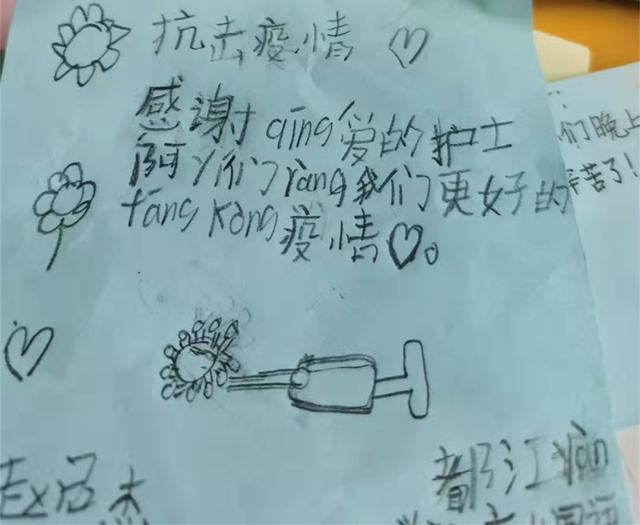 抗击疫情
感谢 qīng爱的护士
阿yí们 ràng我们更好的
fáng kòng疫情。
们晚上
辛苦了!
都江yàn